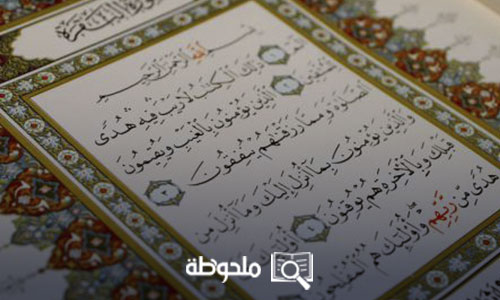 سُورَةُ الْبَقَرَةِ
بِسْمِ اللَّهِ الرَّحْمَٰنِ الرَّحِيمِ
الٓمٓ ۝١ ذَٰلِكَ الْكِتَٰبُ لَا رَيْبَ فِيهِ هُدًى
لِّلْمُتَّقِينَ ۝٢ الَّذِينَ يُؤْمِنُونَ بِالْغَيْبِ وَيُقِيمُونَ
الصَّلَوٰةَ وَمِمَّا رَزَقْنَٰهُمْ يُنفِقُونَ ۝٣
وَالَّذِينَ يُؤْمِنُونَ بِمَا أُنزِلَ إِلَيْكَ وَمَا أُنزِلَ مِن
قَبْلِكَ وَبِالْآخِرَةِ هُمْ يُوقِنُونَ ۝٤ أُولَٰئِكَ
هُدًى مِّن رَّبِّهِمْ وَأُولَٰئِكَ هُمُ الْمُفْلِحُونَ
ملحوظة